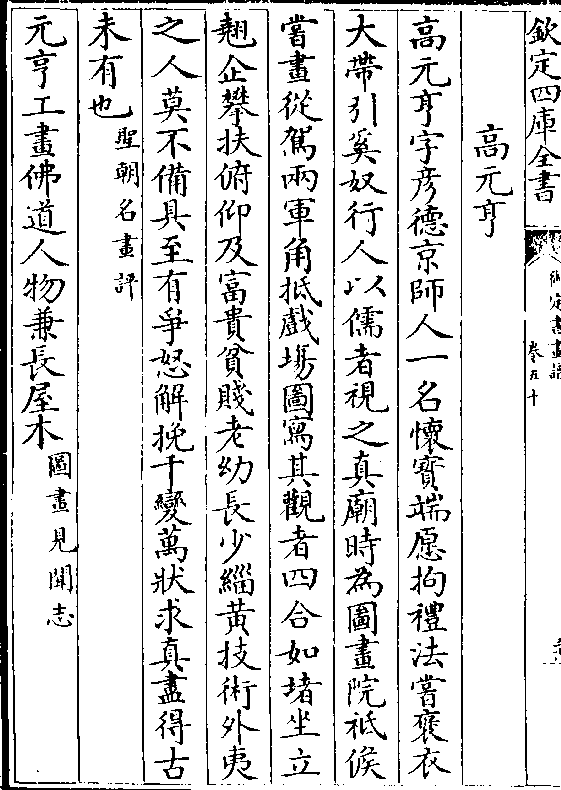 欽定四庫全書
御定書畫譜
卷五十
高元亨
高元亨字彥德京師人一名懷寶端愿拘禮法嘗褒衣
大帶引奚奴行人以儒者視之真廟時為圖畫院祗候
嘗畫從駕兩軍角抵戲場圖寫其觀者四合如堵坐立
翹企攀扶俯仰及富貴貧賤老幼長少緇黃技術外夷
之人莫不備具至有爭怒解挽千變萬狀求真盡得古
未有也聖朝名畫評
元亨工畫佛道人物兼長屋木圖畫見聞志